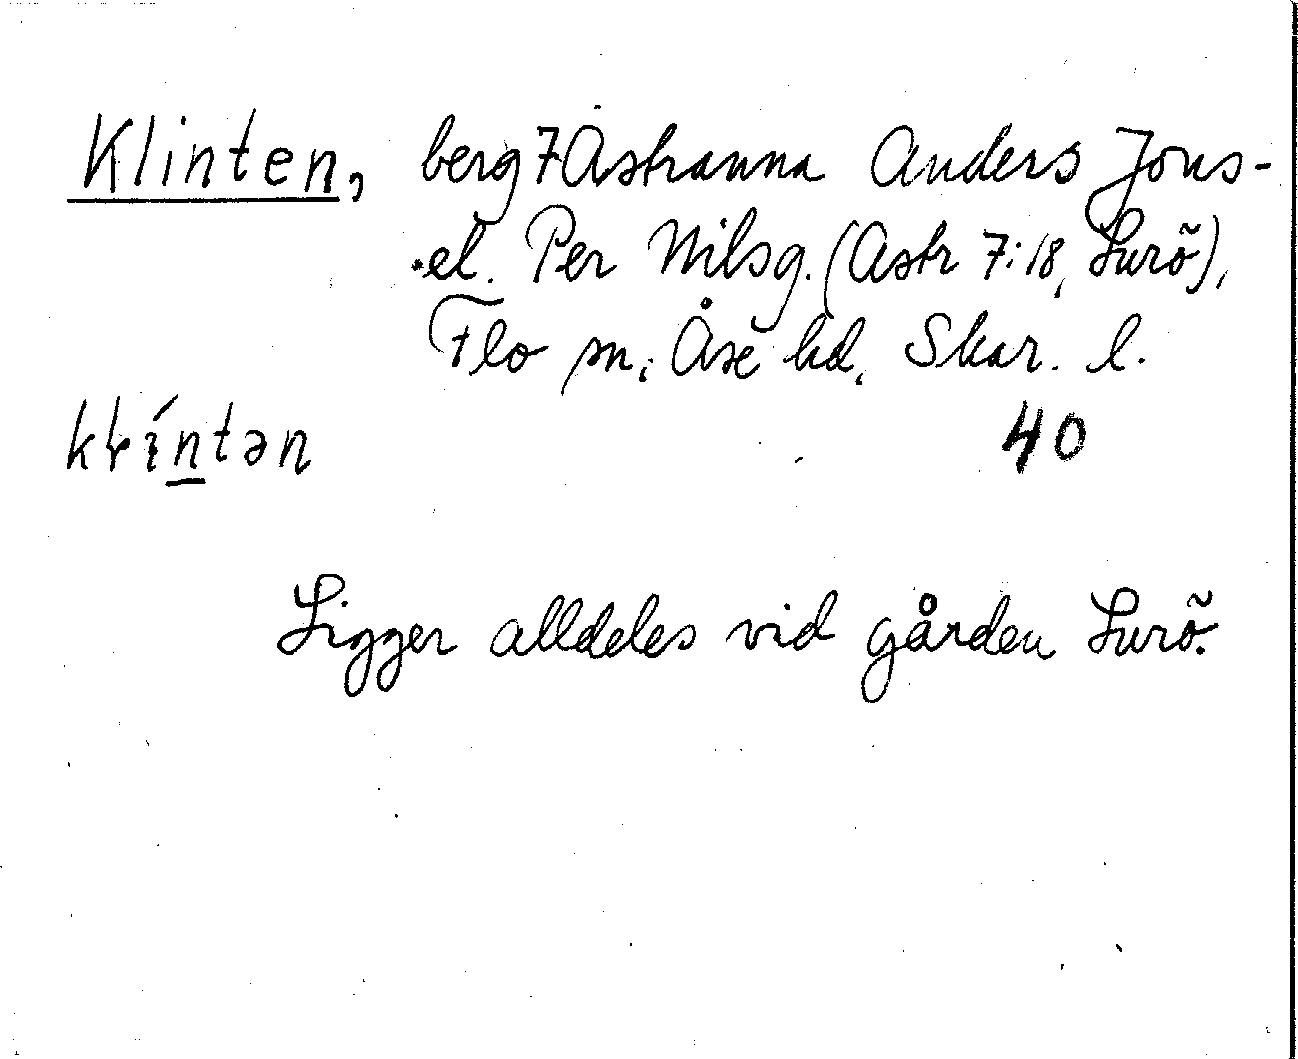 Klinten, berg 7 Astranna Anders Jons-
el. Per Nilsg. (Astr 7:18, Lurö),
Flo sn, Åse hd, Skar. l.
klíntən 40
Ligger alldeles vid gården Lurö.